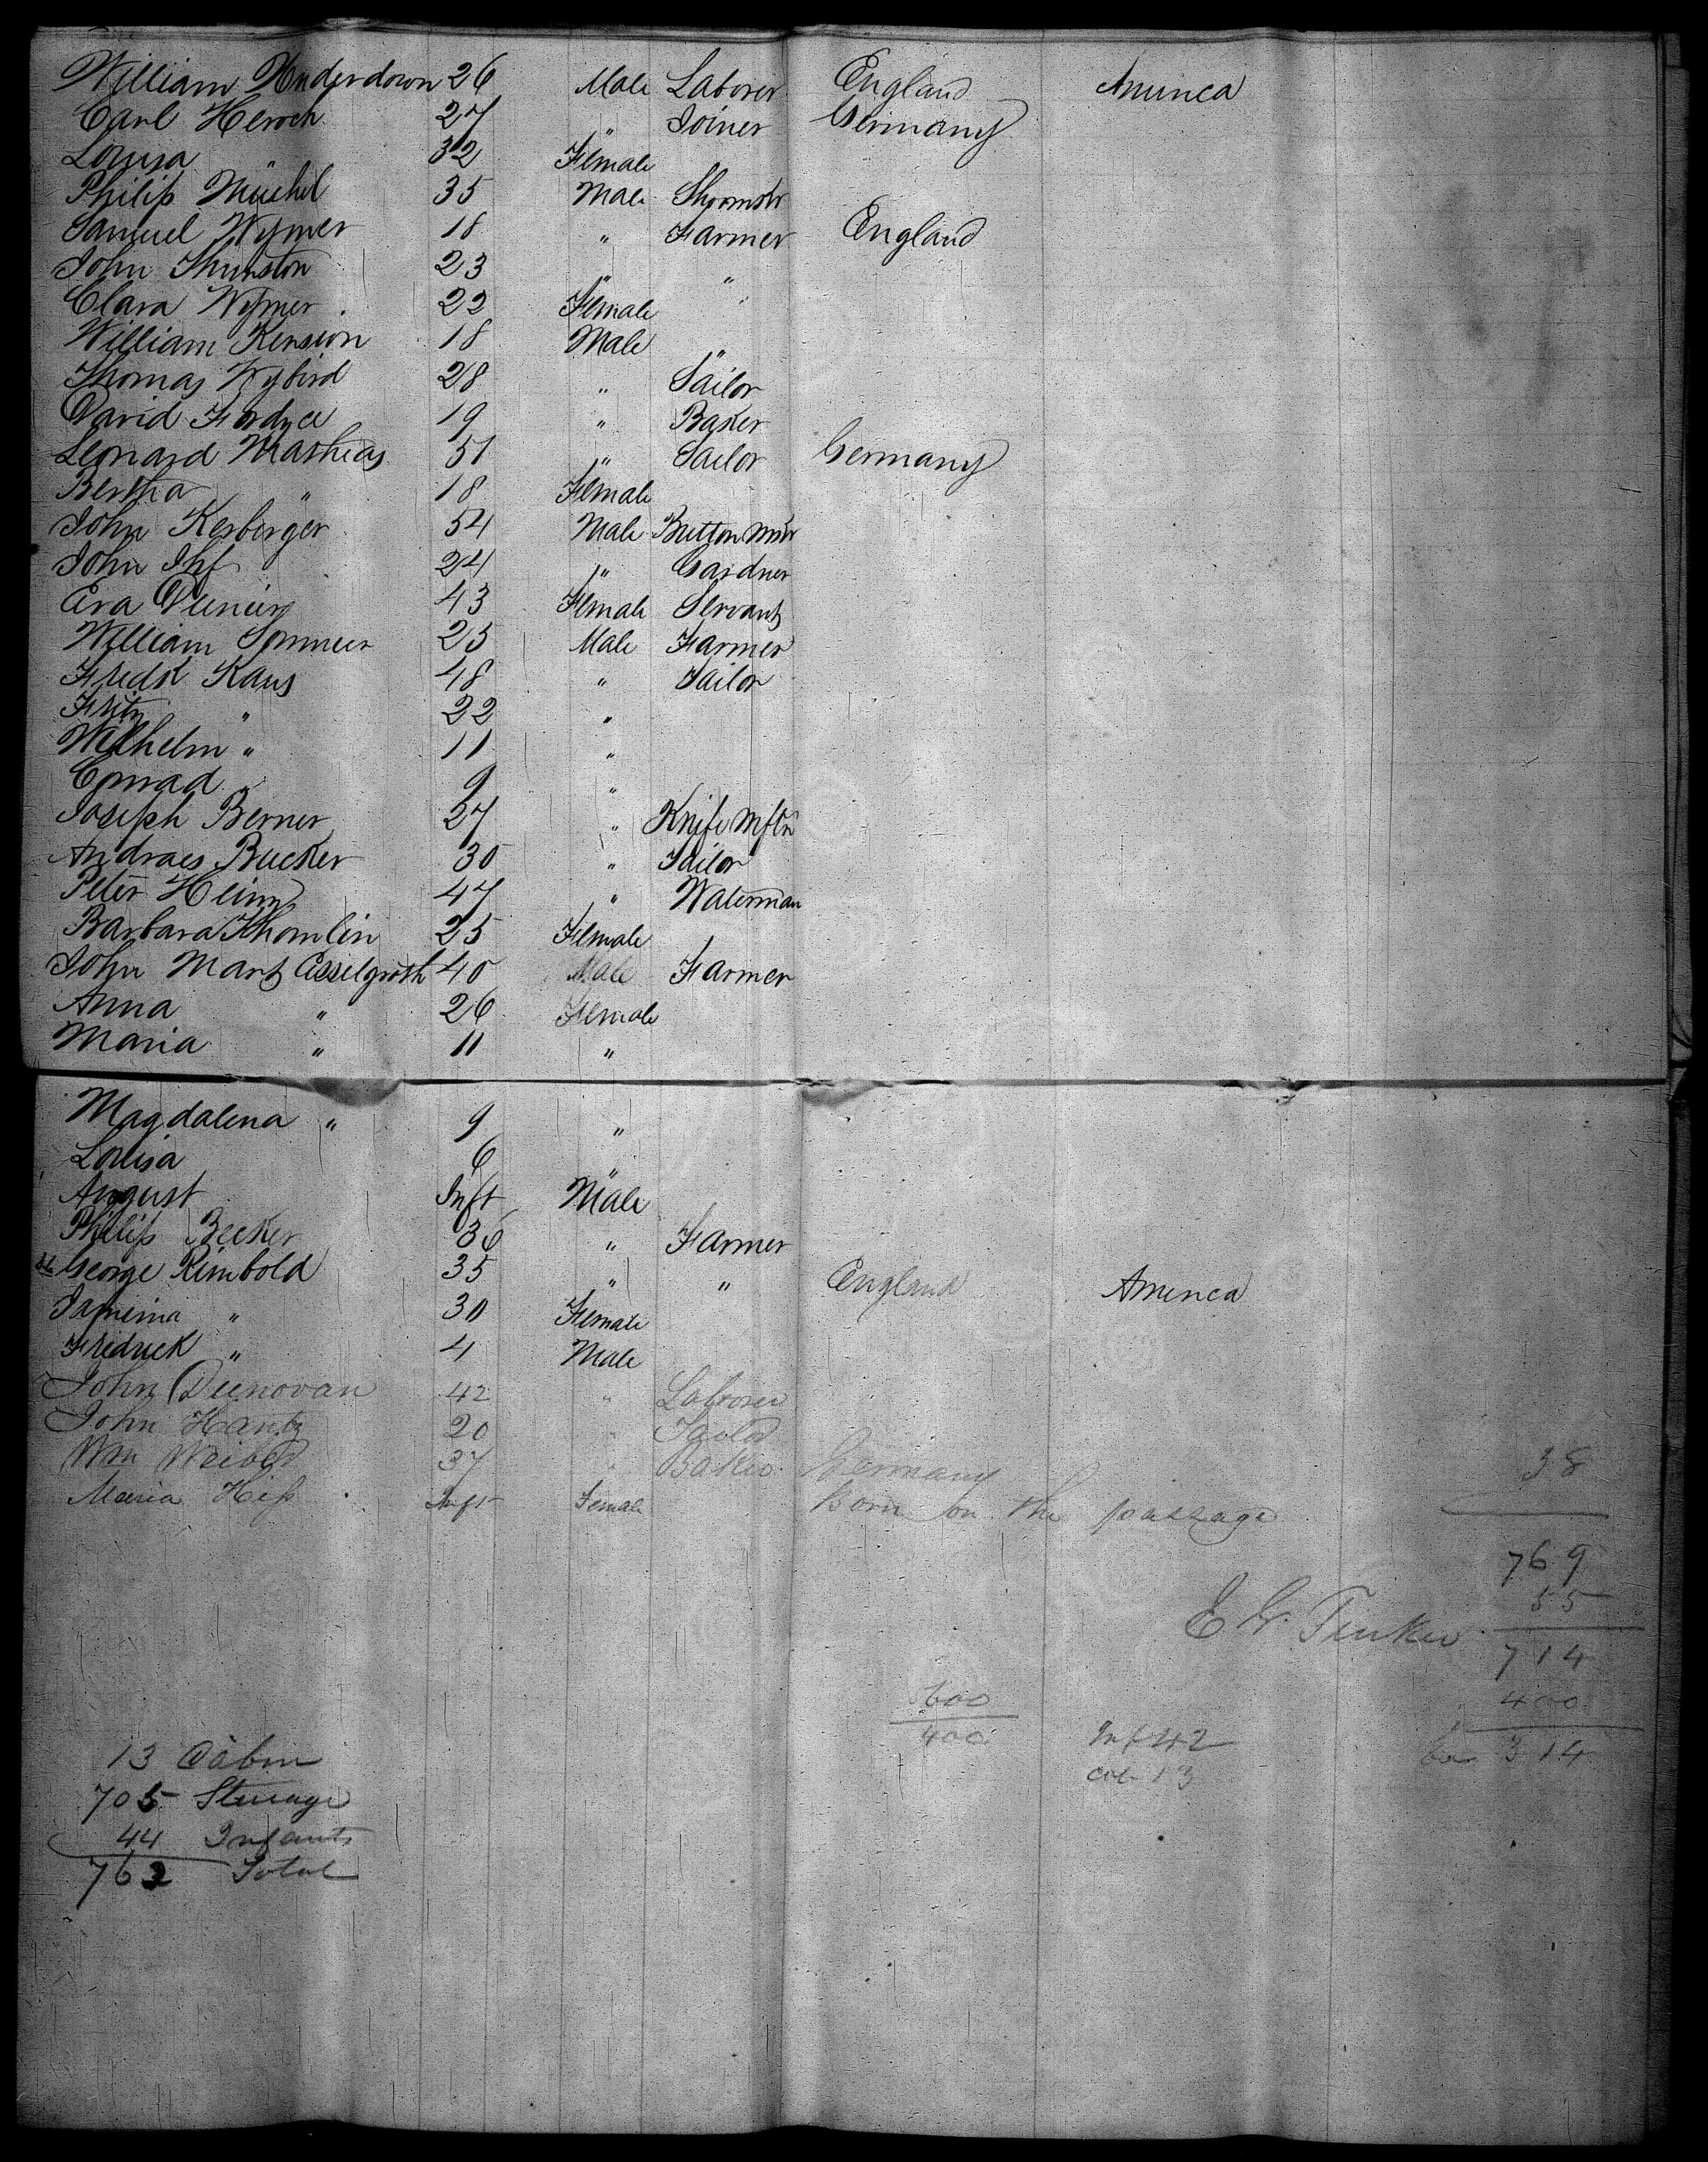 William Underdown 26 Male Laborer England America
Carl Heroch 27 " Joiner Germany
Louisa " 32 Female
Philip Müchel 35 Male
Samuel Wymer 18 " Farmer England
John Thurston 23 " "
Clara Wymer 22 Female
William Kension 18 Male "
Thomas Wybird 28 " Sailor
David Fordyce 19 " Baker
Leonard Mathias 51 " Tailor Germany
Bertha " 18 Female
John Kesberger 54 Male Button Mkr
John Ihf 24 " Gardner
Eva 43 Female Servant
William Sommer 25 Male Farmer
Fredk Kaus 48 " Tailor
Fritz " 22 "
Wilhelm " 11 "
Conrad " 9 "
Joseph Berner 27 " Knife Mftr
Andraes Bucker 30 " Tailor
Peter Heim 47 " Waterman
Barbara Thomlin 25 Female
John Mart Esselgroth 40 Male Farmer
Anna " 26 Female
Maria " 11 "
Magdalena " 9 "
Louisa 6 "
August Inft Male
Philip Becker 36 " Farmer
George Rimbold 35 " " England America
Jamima " 30 Female
Fredrick " 4 Male
John Deenovan 42 " Laborer
John Hantz 20 " Tailor
Wm Weibel 37 " Baker Germany 38
Maria Hiss Inft Female Born on the passage
769
55
E W. Tinker
714
600 400
400 Inf 42 314
13 Cabin cab 13
705 Steerage
44 Infants
762 Total